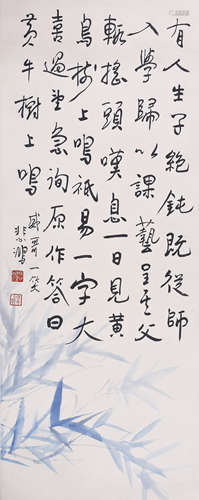 有人生子絕鈍既從師
入學歸以課藝呈其父
輒搖頭嘆息一日見黃
鳥樹上鳴祇易一字大
喜過望急詢原作答曰
黃牛樹上鳴
哥一笑
悲鴻